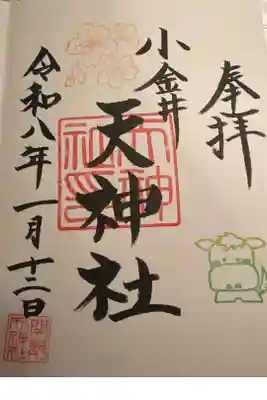 奉拝
小金井
天神社
令和八年一月十二日